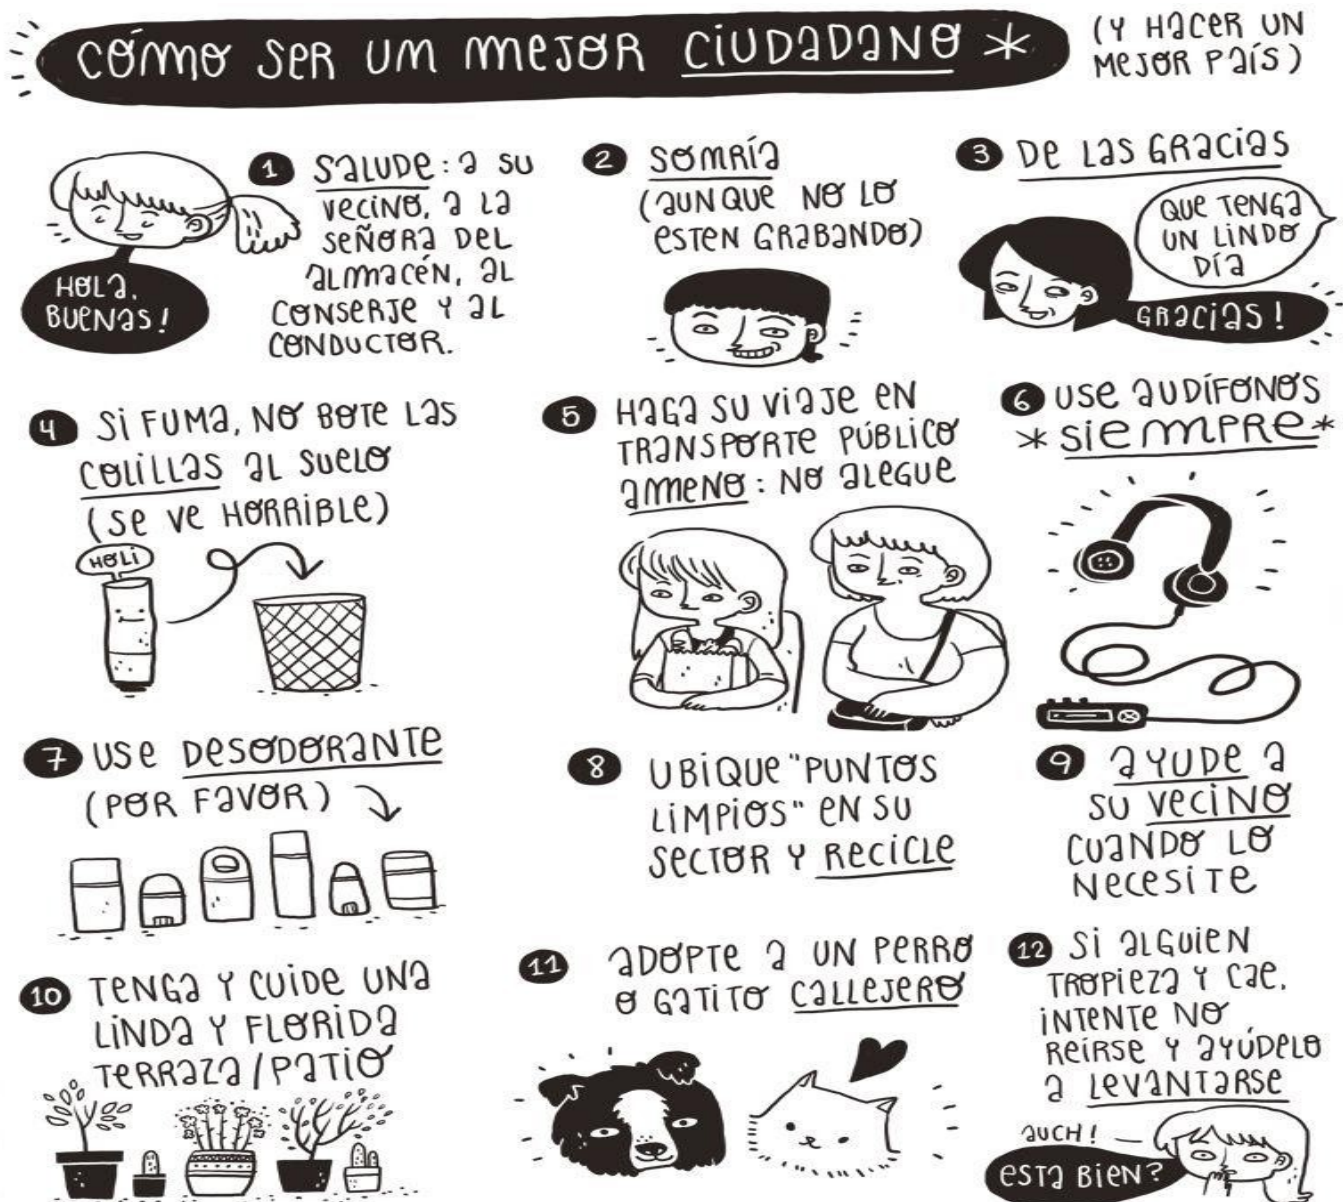 CÓMO SER UM MEJOR CIUDADANO *
(Y HACER UN
MEJOR PAÍS)
1 SALUDE: A SU
VECINO, A LA
SEÑORA DEL
ALMACÉN, AL
CONSERJE Y AL
CONDUCTOR.
HOLA,
BUENAS!
2 SOMRÍA
(AUNQUE NO LO
ESTEN GRABANDO)
3 DE LAS GRACIAS
QUE TENGA
UN LINDO
DÍA
GRACIAS!
4 SI FUMA, NO BOTE LAS
COLILLAS AL SUELO
(SE VE HORRIBLE)
HOLI
5 HAGA SU VIAJE EN
TRANSPORTE PÚBLICO
AMENO: NO ALEGUE
6 USE AUDÍFONOS
*SIEMPRE*
7 USE DESODORANTE
(POR FAVOR)
8 UBIQUE "PUNTOS
LIMPIOS" EN SU
SECTOR Y RECICLE
9 AYUDE A
SU VECINO
CUANDO LO
NECESITE
10 TENGA Y CUIDE UNA
LINDA Y FLORIDA
TERRAZA/PATIO
11 ADOPTE A UN PERRO
O GATITO CALLEJERO
12 SI ALGUIEN
TROPIEZA Y CAE,
INTENTE NO
REÍRSE Y AYÚDELO
A LEVANTARSE
AUCH!
ESTA BIEN?